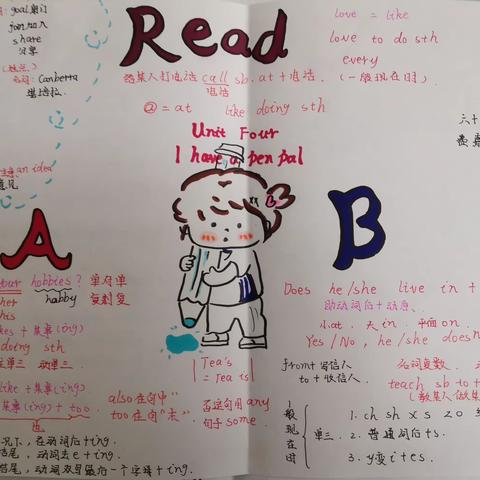 goal 射门
join 加入
share
分享
Canberra
堪培拉
an idea
意见
Read
给某人打电话 call sb. at + 电话.
电话
② = at like doing sth
love = like
love to do sth
every
(一般现在时)
六十
Unit Four
I have a pen pal
A
B
your hobbies? 单对单
her habby 复对复
his
likes + 某事(ing)
doing sth
单三 动单三.
like + 某事(ing)
某事(ing) + too
also 在句中"
too 在句"末".
Tea's
= Tea is
否定句用 any
句子 some.
况下, 在动词后 + ing.
结尾, 动词去 e + ing.
结尾, 动词双写最后一个字母 + ing.
Does he/she live in +
助动词后 + 动原.
小 at. 大 in. 平面 on.
Yes / No, he / she does
from + 写信人 名词复数.
to + 收信人. teach sb to +
一般现在时
单三
1. ch sh x s z o
2. 普通词后 + s.
3. y变 i + es.